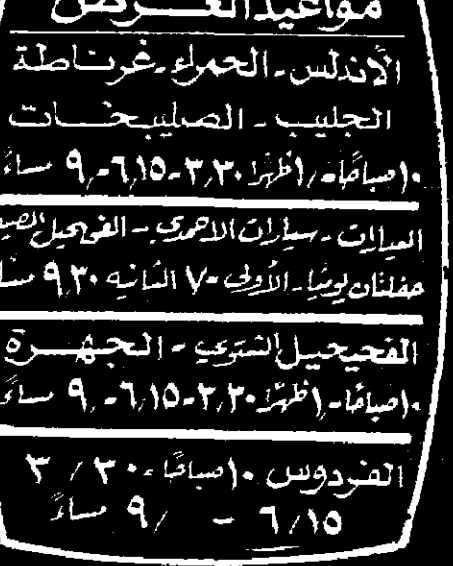 مواعيد العرض
الأندلس - الحمراء - غرناطة
الجليب - الصليبخات
١٠صباحًا - ١ظهرًا - ٣,٣٠ - ٦,١٥ - ٩ مساءً
السيارات - سيارات الاحمدي - الفحيحيل الصيفي
حفلتان يوميا - الأولى ٧ - الثانيه ٩,٣٠ مساءً
الفحيحيل الشتوي - الجهرة
١٠صباحًا - ١ظهرًا - ٣,٣٠ - ٦,١٥ - ٩ مساءً
الفردوس ١٠صباحًا - ٣٠ / ٣
٦/١٥ - ٩/ مساءً